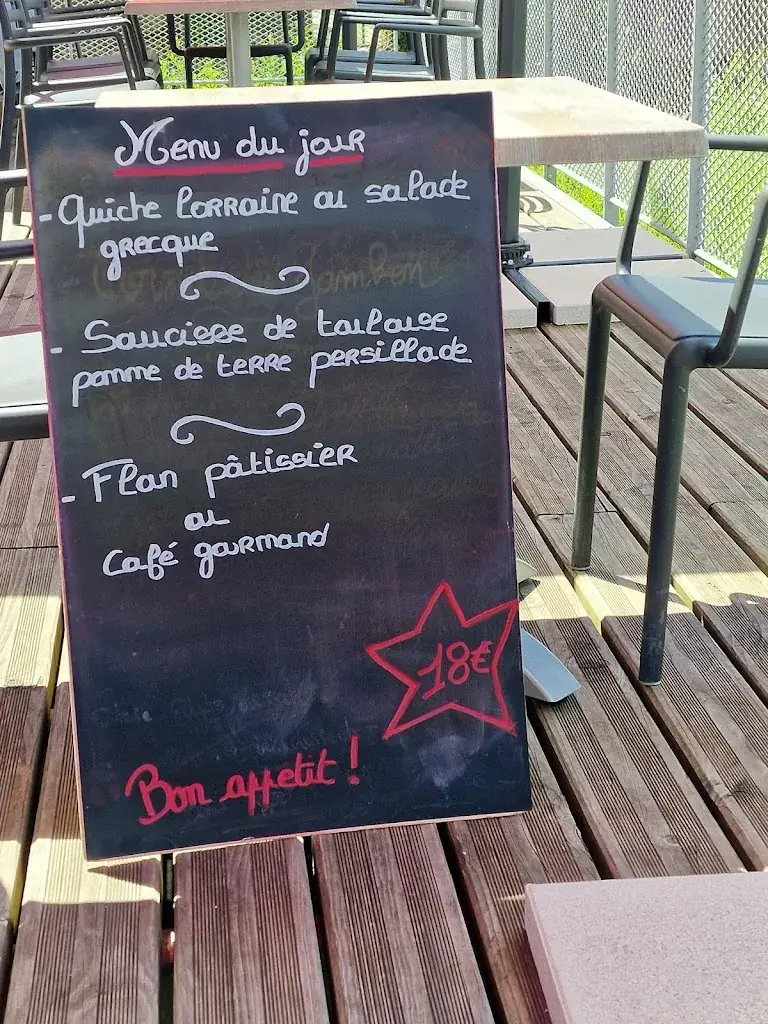 Menu du jour
- Quiche lorraine ou salade
grecque
Jambon
- Saucisse de toulouse
pomme de terre persillade
- Flan pâtissier
ou
Café gourmand
18€
Bon appetit !